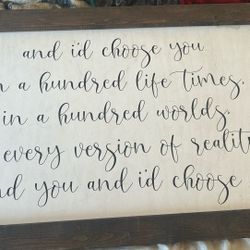 and i'd choose you
n a hundred life times.
in a hundred worlds.
every version of realit
nd you and i'd choose